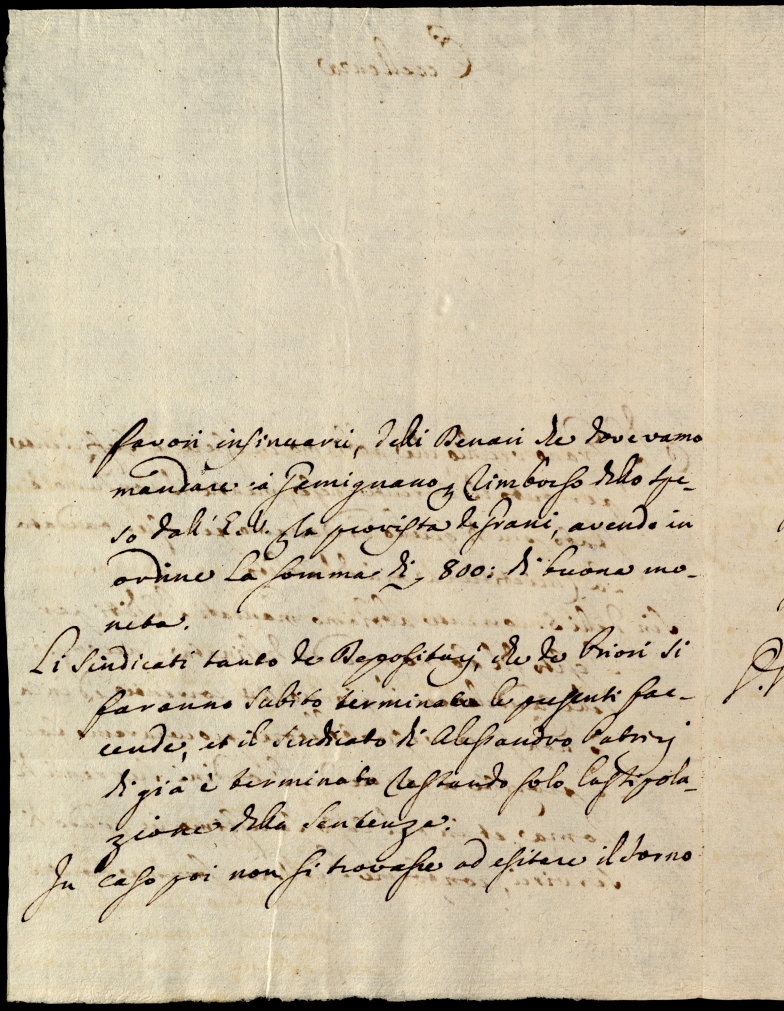 favori insinuarci, delli Denari che dovevamo
mandare à Gemignano p Rimborso dello spe-
so dall' E. V. p la provista de Grani, avendo in
ordine la somma di 800: di buona mo-
neta.
Li Sindicati tanto de Depositarj, che de Priori si
faranno subito terminate le presenti fac-
cende, et il Sindicato di Alessandro Patrizj
di già è terminato restando solo la stipola-
zione della Sentenza:
In caso poi non si trovasse ad esitare il